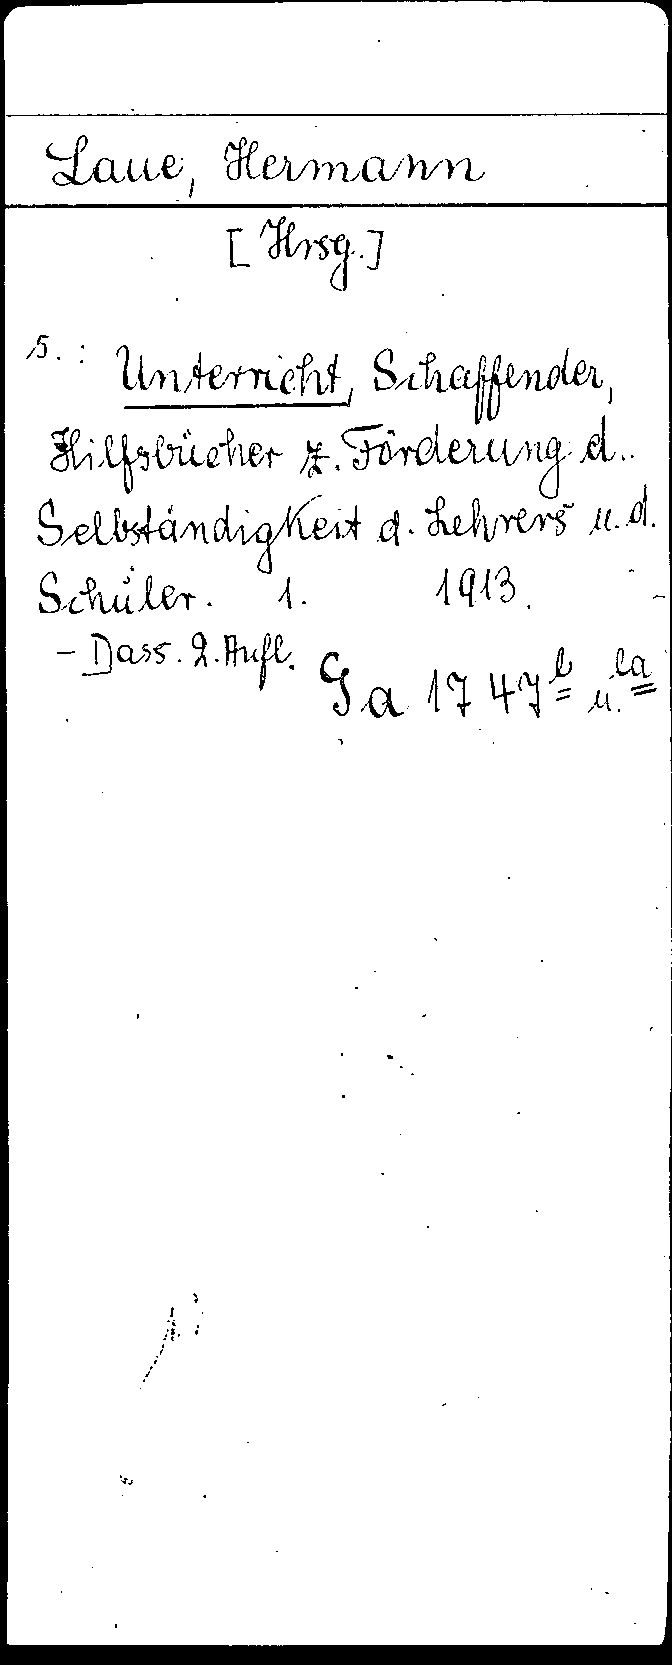 Laue, Hermann
[Hrsg.]
s. : Unterricht, Schaffender,
Hilfsbücher z. Förderung d.
Selbständigkeit d. Lehrers u. d.
Schüler. 1. 1913.
- Dass. 2. Aufl.
Ga 1747 b u. ba